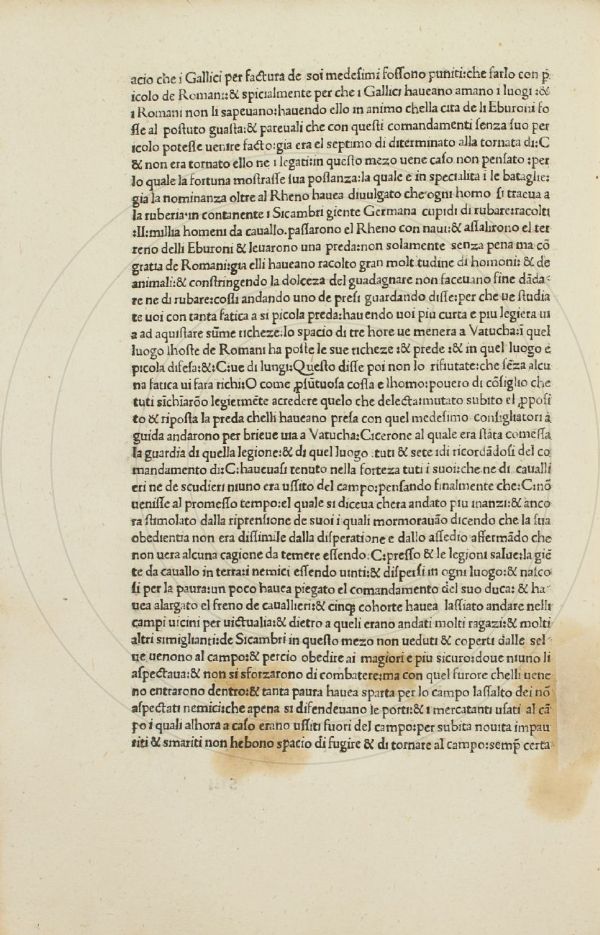 acio che i Gallici per factura de soi medesimi fossono puniti:che farlo con p̄
icolo de Romani:& spicialmente per che i Gallici haueano amano i luogi:&
i Romani non li sapeuano:hauendo ello in animo chella cita de li Eburoni fo
sse al postuto guasta:& pareuali che con questi comandamenti senza suo per
icolo potesse uenire facto:gia era el septimo di diterminato alla tornata di:C
& non era tornato ello ne i legati:in questo mezo uene caso non pensato:per
lo quale la fortuna mostrasse sua possanza:la quale e in specialita i le bataglie:
gia la nominanza oltre al Rheno hauea diuulgato che ogni homo si traeua a
la ruberia:in contanente i Sicambri giente Germana cupidi di rubare:racolti
:II:millia homeni da cauallo.passarono el Rheno con naui:& assalirono el ter
reno delli Eburoni & leuarono una preda:non solamente senza pena ma cō
gratia de Romani:gia elli haueano racolto gran moltitudine di homoni:& de
animali:& constringendo la dolceza del guadagnare non faceuano fine dāda-
re ne di rubare:cossi andando uno de presi guardando disse:per che ue studia
te uoi con tanta fatica a si picola preda:hauendo uoi piu curta e piu legiera ui
a ad aquistare sūme richeze:lo spacio di tre hore ue menera a Vatucha:ī quel
luogo lhoste de Romani ha poste le sue richeze:& prede:& in quel luogo e
picola difesa:&:C:ue di lungi:Questo disse poi non lo rifiutate:che sēza alcu
na fatica ui fara richi:O come p̄sūtuosa cossa e lhomo:pouero di cōsiglio che
tuti sīchiarāo legiermēte acredere quelo che delecta:mutato subito el ꝓposi
to & riposta la preda chelli haueano presa con quel medesimo consigliatori à
guida andarono per brieue uia a Vatucha:Cicerone al quale era stata comessa
la guardia di quella legione:& di quel luogo tuti & sete idi ricordādosi del co
mandamento di:C:haueuasi tenuto nella forteza tuti i suoi:che ne di caualli
eri ne de scudieri niuno era ussito del campo:pensando finalmente che:C:nō
uenisse al promesso tempo:el quale si diceua chera andato piu inanzi:& anco
ra stimolato dalla riprensione de suoi i quali mormorauāo dicendo che la sua
obedientia non era dissimile dalla disperatione e dallo assedio affermādo che
non uera alcuna cagione da temere essendo:C:presso & le legioni salue:la giē
te da cauallo in terra:i nemici essendo uinti:& dispersi in ogni luogo:& nasco
si per la paura:un poco hauea piegato el comandamento del suo duca:& ha-
uea alargato el freno de cauallieri:& cinqȝ cohorte hauea lassiato andare nelli
campi uicini per uictualia:& dietro a queli erano andati molti ragazi:& molti
altri simiglianti:de Sicambri in questo mezo non ueduti & coperti dalle sel-
ue uenono al campo:& percio obedire ai magiori e piu sicuro:doue niuno li
aspectaua:& non si sforzarono di combatere:ma con quel furore chelli uene
no entrarono dentro:& tanta paura hauea sparta per lo campo lassalto dei nō
aspectati nemici:che apena si difendeuano le porti:& i mercatanti usati al cā
po i quali alhora a caso erano ussiti fuori del campo:per subita nouita impau
riti & smariti non hebono spacio di fugire & di tornare al campo:semp̄ certa